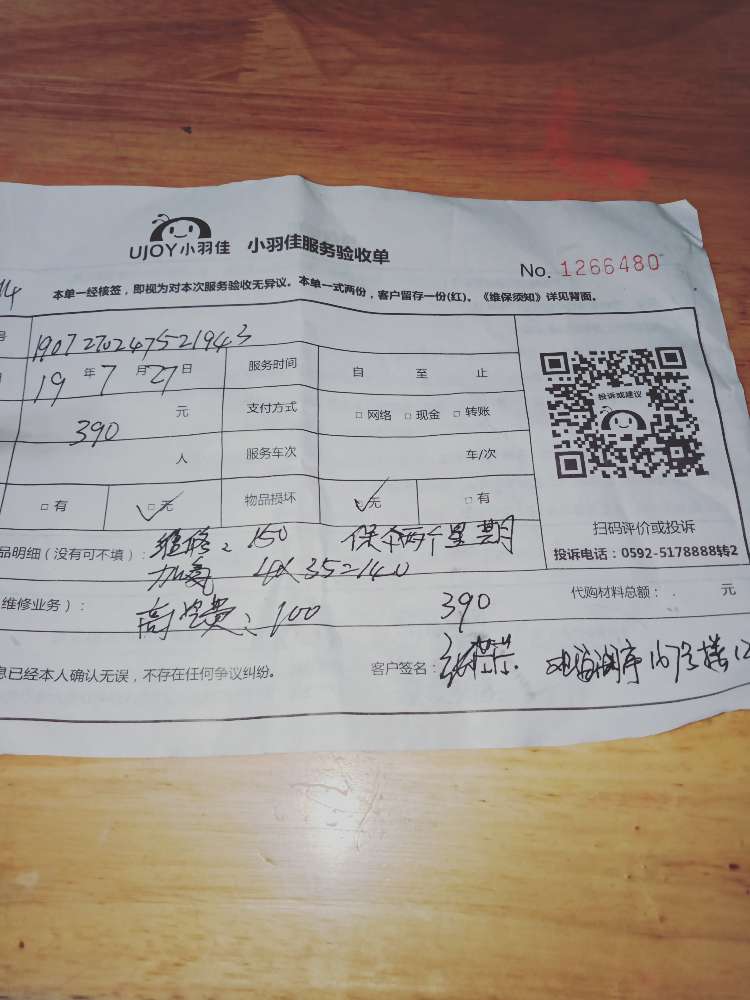 UJOY小羽佳 小羽佳服务验收单
No. 1266480
本单一经核签，即视为对本次服务验收无异议。本单一式两份，客户留存一份(红)。《维保须知》详见背面。
号 1907270247521943
19 年 7 月 27 日 服务时间 自 至 止
390 元 支付方式 □ 网络 □ 现金 □ 转账
人 服务车次 车/次
□ 有 □ 无 物品损坏 □ 无 □ 有
投诉或建议
扫码评价或投诉
投诉电话：0592-5178888转2
品明细（没有可不填）： 维修：150 保个两个星期
加氨 4×35=140
维修业务）： 高空费：100 390 代购材料总额： 元
息已经本人确认无误，不存在任何争议纠纷。 客户签名：